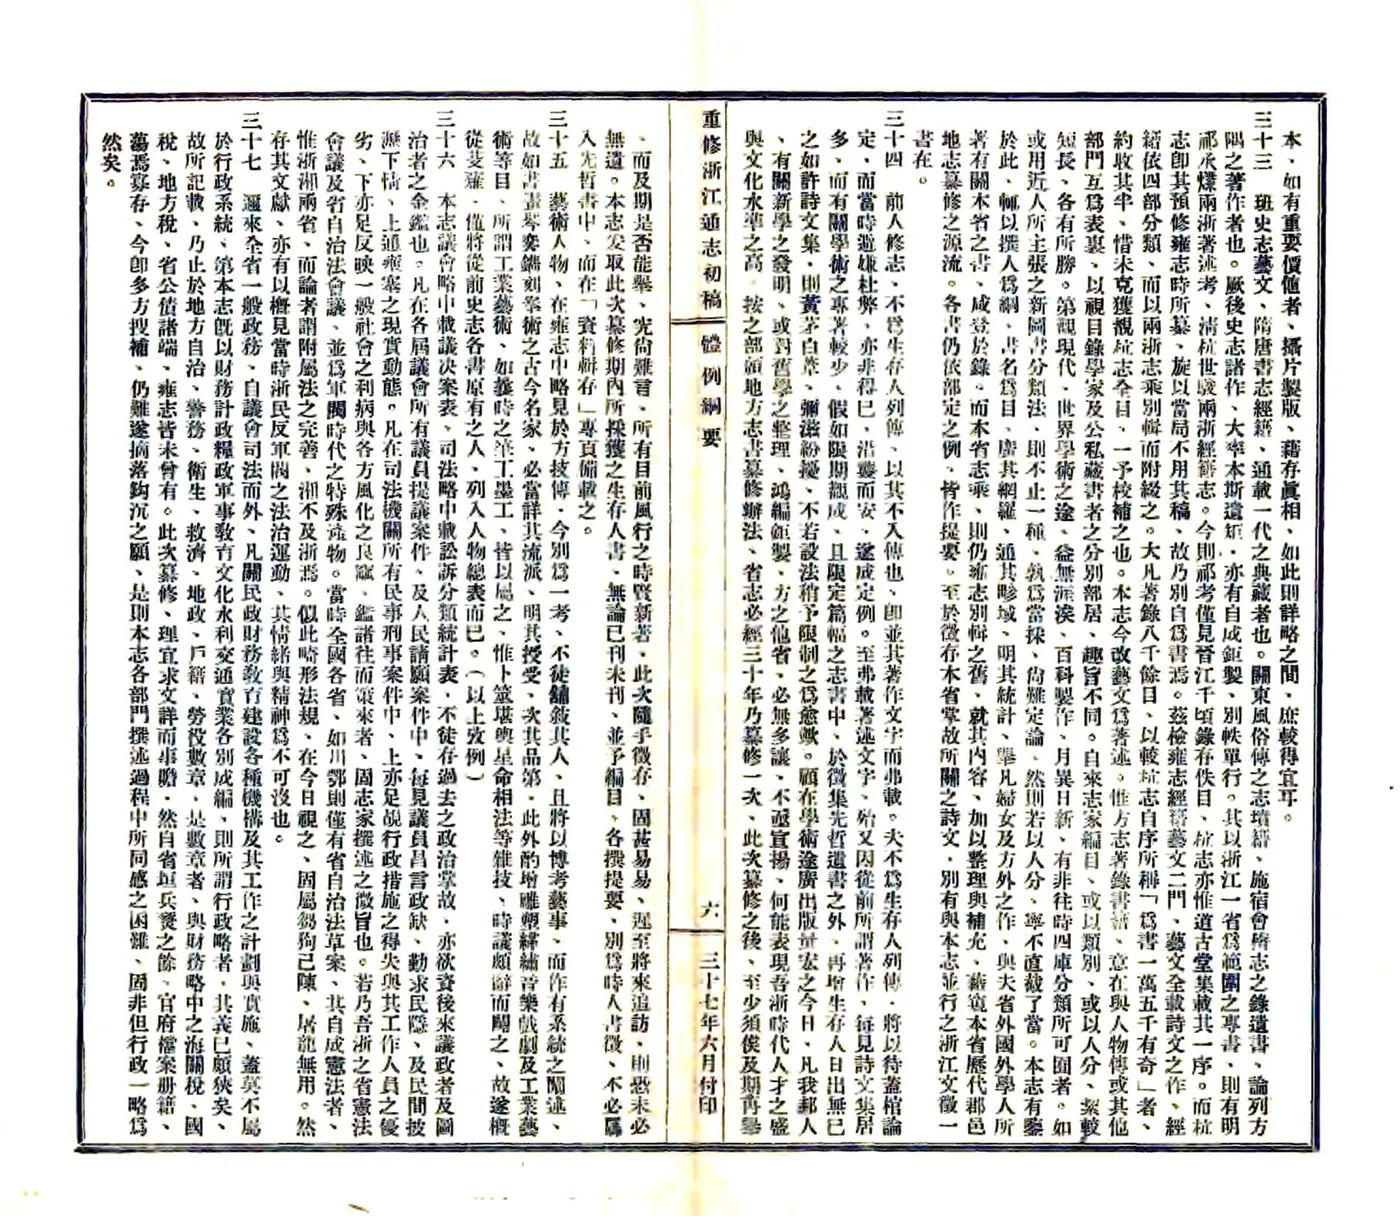 本、如有重要價値者、攝片製版、藉存眞相、如此則詳略之間、庶較得宜耳。
三十三　班史志藝文、隋唐書志經籍、通載一代之典藏者也。關東風俗傳之志墳籍、施宿會稽志之錄遺書、論列方
隅之著作者也。厥後史志諸作、大率本斯遺矩、亦有自成鉅製、別帙單行。其以浙江一省爲範圍之專書、則有明
祁承㸁兩浙著述考、清杭世駿兩浙經籍志。今則祁考僅見晉江千頃錄存佚目、杭志亦惟道古堂集載其一序。而杭
志卽其預修雍志時所纂、旋以當局不用其稿、故乃別自爲書焉。茲檢雍志經籍藝文二門、藝文全載詩文之作、經
籍依四部分類、而以兩浙志乘別輯而附綴之。大凡著錄八千餘目、以較杭志自序所稱「爲書一萬五千有奇」者、
約收其半、惜未克獲覩杭志全目、一予校補之也。本志今改藝文爲著述。惟方志著錄書籍、意在與人物傳或其他
部門互爲表裏、以視目錄學家及公私藏書者之分別部居、趣旨不同。自來志家編目、或以類別、或以人分、絜較
短長、各有所勝。第觀現代、世界學術之途、益無涯涘、百科製作、月異日新、有非往時四庫分類所可囿者。如
或用近人所主張之新圖書分類法、則不止一種、孰爲當採、尙難定論、然則若以人分、寧不直截了當。本志有鑒
於此、輒以撰人爲綱、書名爲目、廣其網羅、通其畛域、明其統計、舉凡婦女及方外之作、與夫省外國外學人所
著有關本省之書、咸登於錄。而本省志乘、則仍雍志別輯之舊、就其內容、加以整理與補充、藉覘本省歷代郡邑
地志纂修之源流。各書仍依部定之例、皆作提要。至於徵存本省掌故所關之詩文、別有與本志並行之浙江文徵一
書在。
三十四　前人修志、不爲生存人列傳、以其不入傳也、卽並其著作文字而弗載。夫不爲生存人列傳、將以待蓋棺論
定、而當時避嫌杜弊、亦非得已、沿襲而安、遂成定例。至弗載著述文字、殆又因從前所謂著作、每見詩文集居
多、而有關學術之專著較少、假如限期觀成、且限定篇幅之志書中、於徵集先哲遺書之外、再增生存人日出無已
之如許詩文集、則黃茅白葦、彌滋紛擾、不若設法稍予限制之爲愈歟。顧在學術途廣出版量宏之今日、凡我邦人
、有關新學之發明、或對舊學之整理、鴻編鉅製、方之他省、必無多讓、不亟宣揚、何能表現吾浙時代人才之盛
與文化水準之高。按之部頒地方志書纂修辦法、省志必經三十年乃纂修一次、此次纂修之後、至少須俟及期再舉
重修浙江通志初稿　體例綱要　六　三十七年六月付印
、而及期是否能舉、究尙難言、所有目前風行之時賢新著、此次隨手徵存、固甚易易、遲至將來追訪、則恐未必
無遺。本志爰取此次纂修期內所採獲之生存人書、無論已刊未刊、並予編目、各撰提要、別爲時人書徵、不必屬
入先哲書中、而在「資料輯存」專頁備載之。
三十五　藝術人物、在雍志中略見於方技傳、今別爲一考、不徒舖敍其人、且將以博考藝事、而作有系統之闡述、
故如書畫琴奕鐫刻拳術之古今名家、必當詳其流派、明其授受、次其品第、此外酌增雕塑緙繡音樂戲劇及工業藝
術等目、所謂工業藝術、如義時之筆工墨工、皆以屬之、惟卜筮堪輿星命相法等雜技、時議頗辭而闢之、故遂槪
從芟薙、僅將從前史志各書原有之人、列入人物總表而已。（以上攷例）
三十六　本志議會略中載議決案表、司法略中載訟訴分類統計表、不徒存過去之政治掌故、亦欲資後來議政者及圖
治者之金鑑也。凡在各屆議會所有議員提議案件、及人民請願案件中、每見議員昌言政缺、勤求民隱、及民間披
瀝下情、上通壅塞之現實動態。凡在司法機關所有民事刑事案件中、上亦足覘行政措施之得失與其工作人員之優
劣、下亦足反映一般社會之利病與各方風化之良窳、鑑諸往而策來者、固志家撰述之微旨也。若乃吾浙之省憲法
會議及省自治法會議、並爲軍閥時代之特殊產物。當時全國各省、如川鄂則僅有省自治法草案、其自成憲法者、
惟浙湘兩省、而論者謂附屬法之完善、湘不及浙焉。似此畸形法規、在今日視之、固屬芻狗已陳、屠龍無用。然
存其文獻、亦有以槪見當時浙民反軍閥之法治運動、其情緒與精神爲不可沒也。
三十七　邇來全省一般政務、自議會司法而外、凡關民政財務敎育建設各種機構及其工作之計劃與實施、蓋莫不屬
於行政系統、第本志旣以財務計政糧政軍事敎育文化水利交通實業各別成編、則所謂行政略者、其義已頗狹矣、
故所記載、乃止於地方自治、警務、衞生、救濟、地政、戶籍、勞役數章、是數章者、與財務略中之海關稅、國
稅、地方稅、省公債諸端、雍志皆未曾有。此次纂修、理宜求文詳而事贍、然自省垣兵燹之餘、官府檔案册籍、
蕩焉寡存、今卽多方搜補、仍難遂摘落鈎沉之願、是則本志各部門撰述過程中所同感之困難、固非但行政一略爲
然矣。